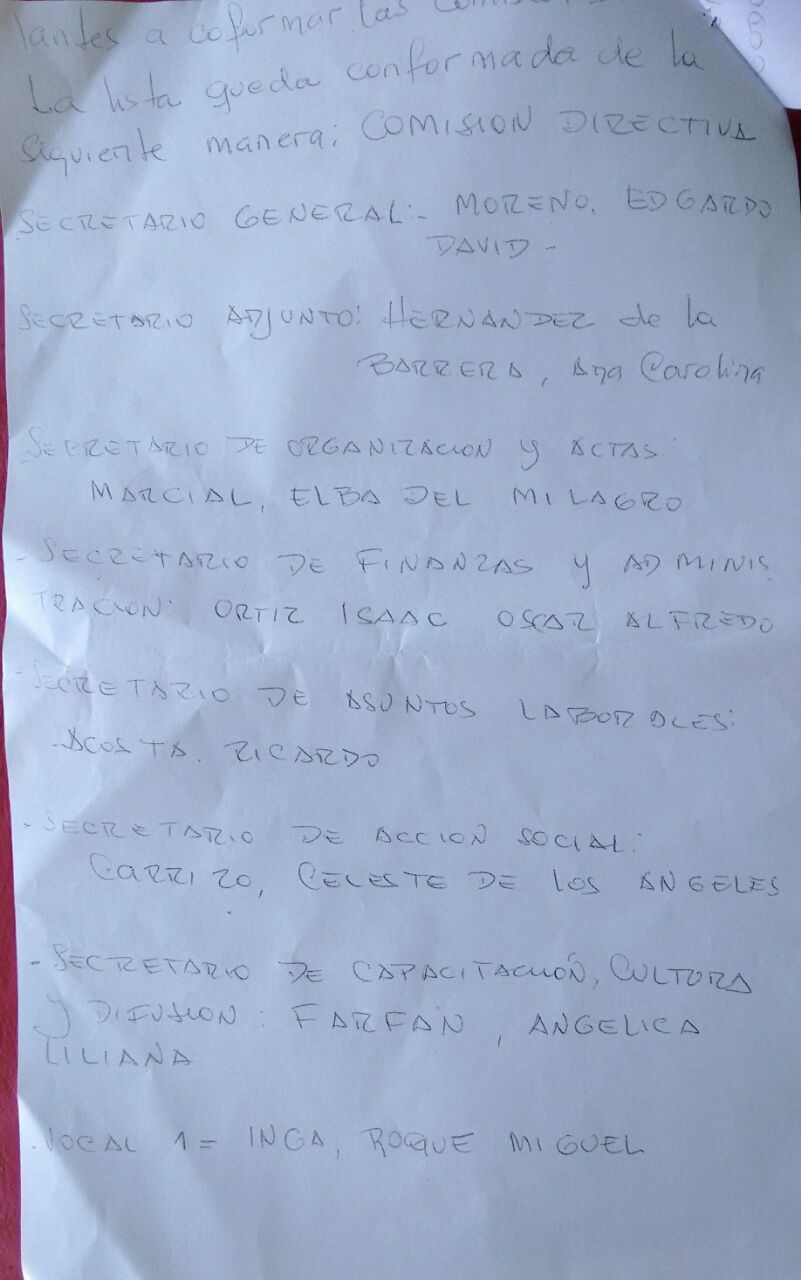 lantes a coformar las
La lista queda conformada de la
siguiente manera: COMISION DIRECTIVA
SECRETARIO GENERAL:- MORENO, EDGARDO
DAVID -
SECRETARIO ADJUNTO: HERNANDEZ de la
BARRERA, Ana Carolina
SECRETARIO DE ORGANIZACION y ACTAS:
MARCIAL, ELBA DEL MILAGRO
- SECRETARIO DE FINANZAS y ADMINIS
TRACION: ORTIZ ISAAC OSCAR ALFREDO
- SECRETARIO DE ASUNTOS LABORALES:
- ACOSTA. RICARDO
- SECRETARIO DE ACCION SOCIAL:
CARRIZO, CELESTE DE LOS ANGELES
- SECRETARIO DE CAPACITACIÓN, CULTURA
y DIFUSION: FARFAN, ANGELICA
LILIANA
. VOCAL 1 = INGA, ROQUE MIGUEL